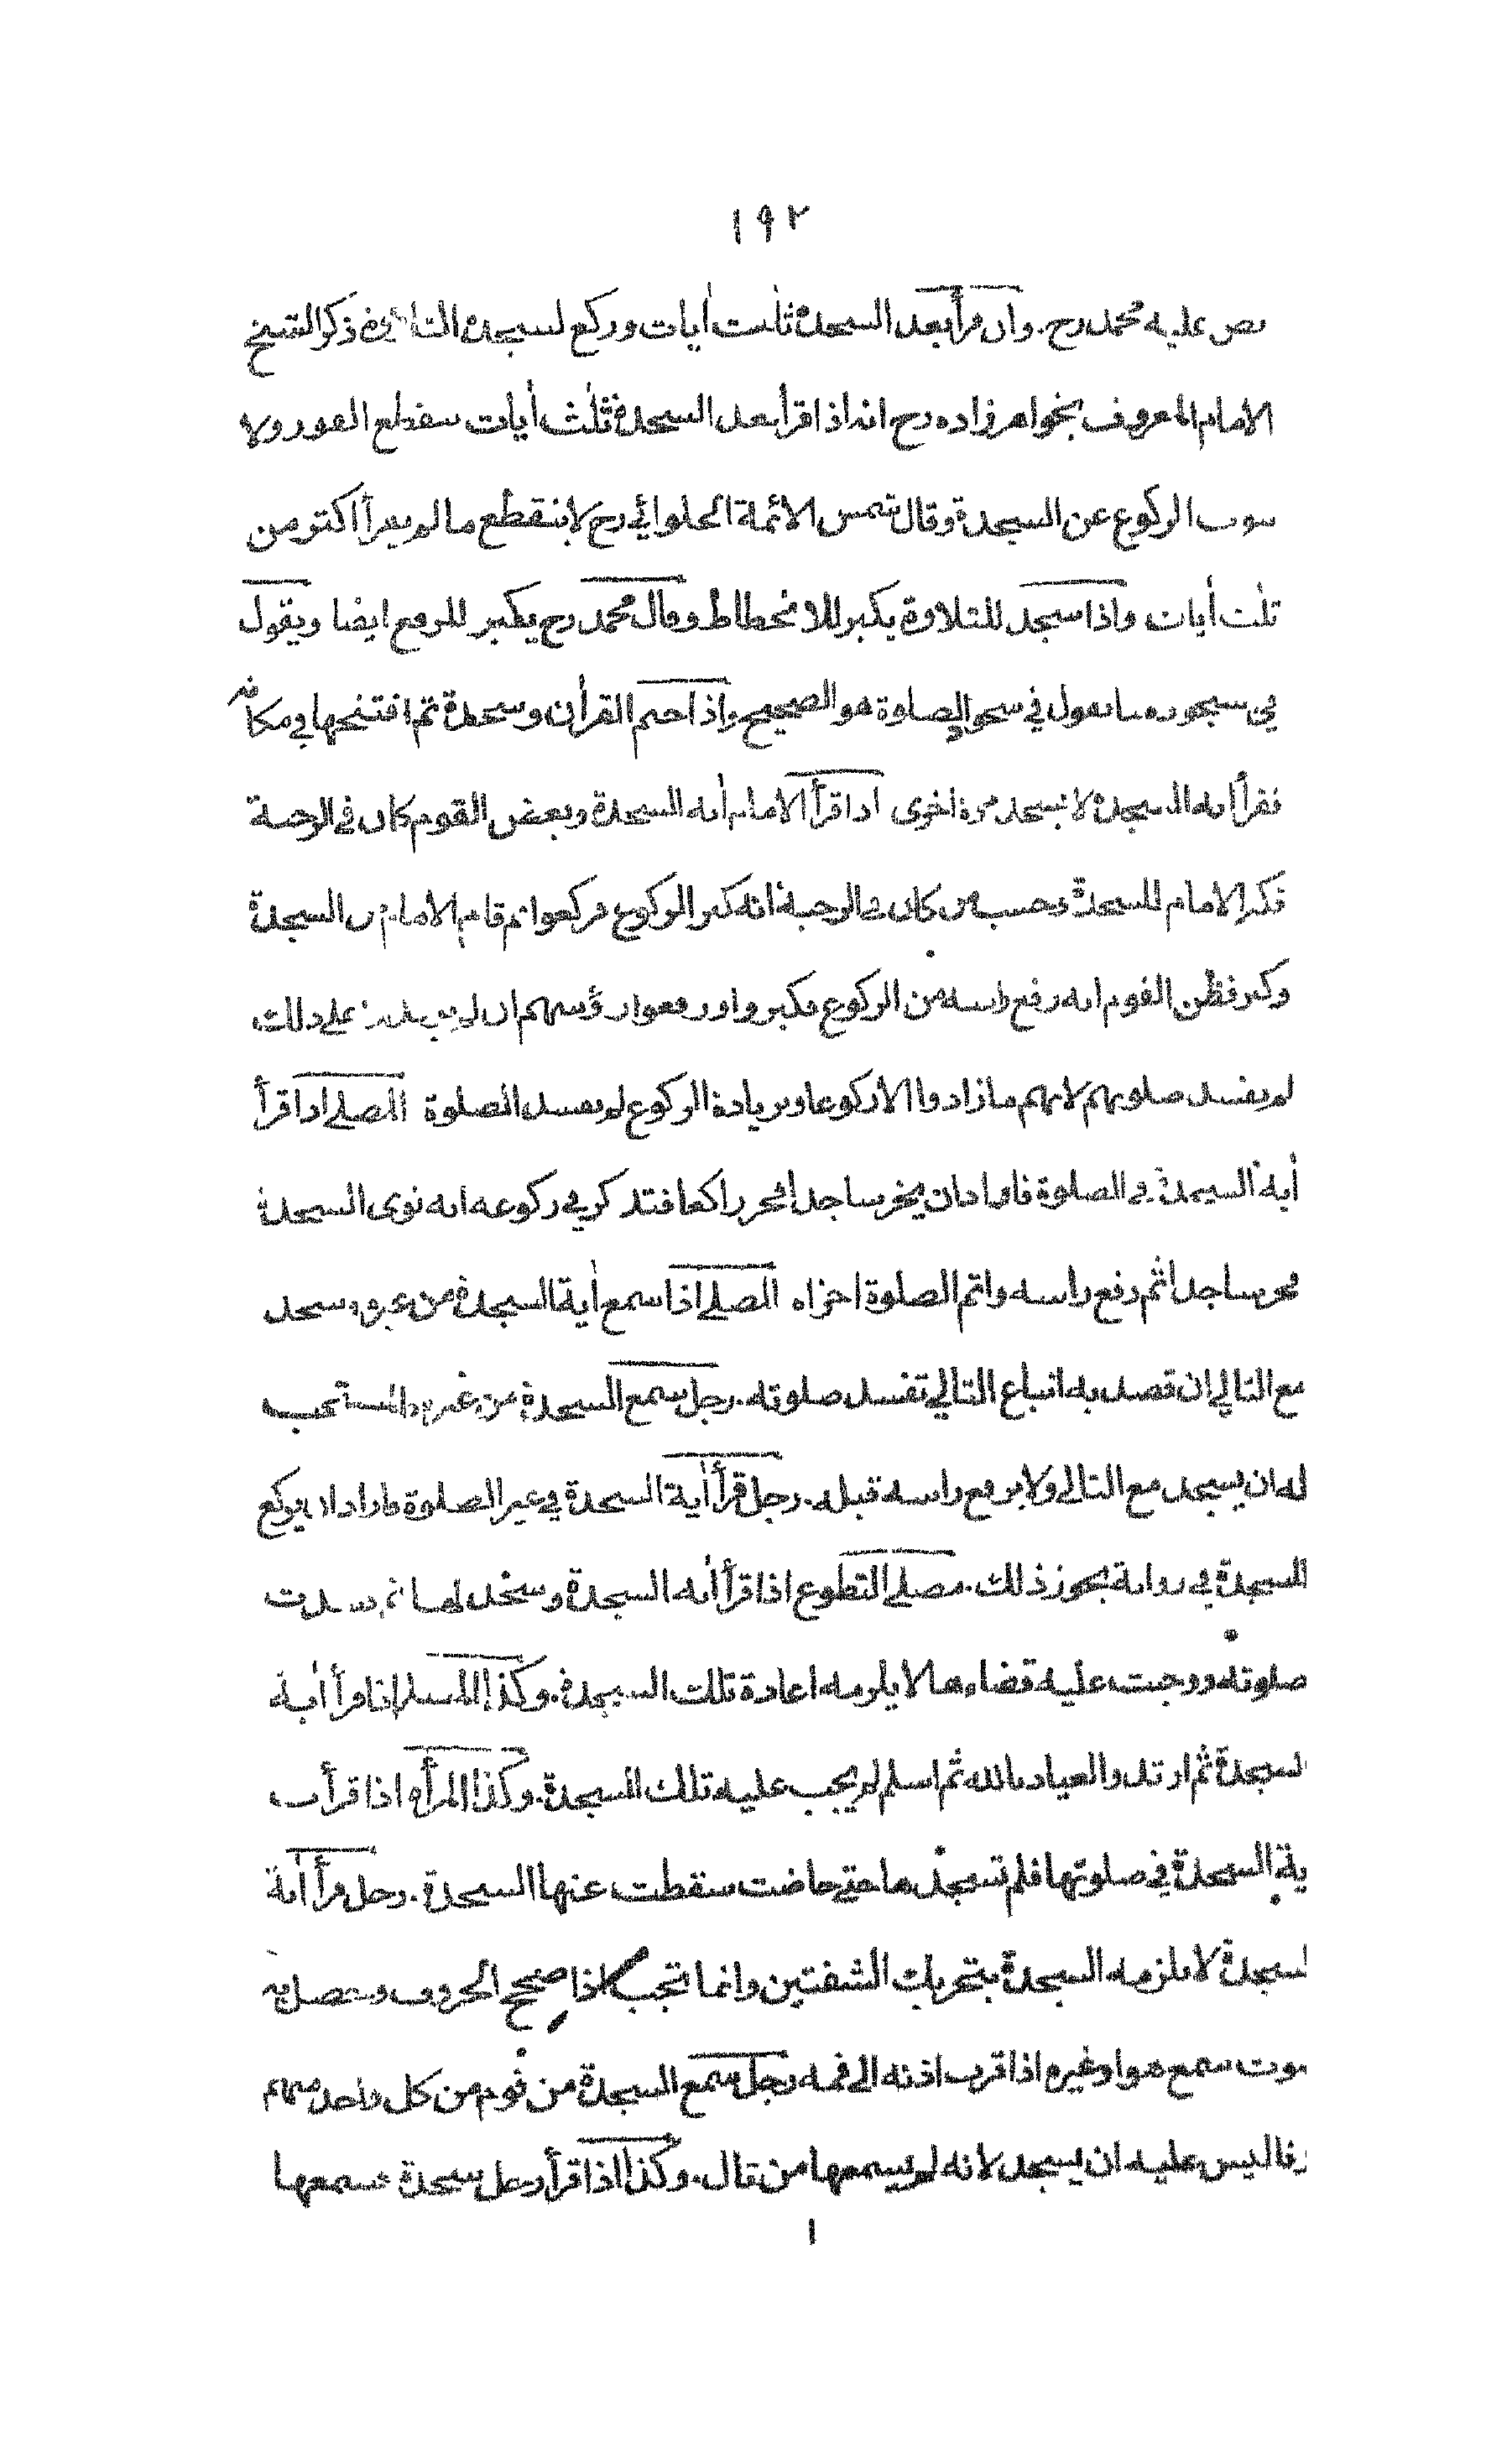 ١٩٢
نص عليه محمد رح. وان قرأ بعد السجدة ثلث أيات وركع لسجدة التلاوة ذكر الشيخ
الامام المعروف بخواهر زاده رح انه اذا قرأ بعد السجدة ثلث أيات ينقطع الفور ولا
ينوب الركوع عن السجدة وقال شمس الائمة الحلوائي رح لا ينقطع ما لم يقرأ اكثر من
ثلث أيات واذا سجد للتلاوة يكبر للانحطاط وقال محمد رح يكبر للرفع ايضا ويقول
في سجوده ما يقول في سجود الصلوة هو الصحيح واذا ختم القرأن وسجدة ثم افتتحها في مكانه
فقرأ أية السجدة لا يسجد مرة اخرى اذا قرأ الامام أية السجدة وبعض القوم كان في الرحبة
فكبر الامام للسجدة وحسب من كان في الرحبة انه كبر الركوع فركعوا ثم قام الامام من السجدة
وكبر فظن القوم انه رفع راسه من الركوع فكبروا ورفعوا رؤسهم ان لم يزيدوا على ذلك
لم يفسد صلوتهم لانهم ما زادوا الا ركوعا وبزيادة الركوع لم يفسد الصلوة المصلي اذا قرأ
أية السجدة في الصلوة فاراد ان يخر ساجدا فخر راكعا فتذكر في ركوعه انه نوى السجدة
فخر ساجدا ثم رفع راسه واتم الصلوة اجزاه المصلي اذا سمع أية السجدة من غيره وسجد
مع التالي ان قصد به اتباع التالي تفسد صلوته. رجل سمع السجدة من غيره والمستحب
له ان يسجد مع التالي ولا يرفع راسه قبله. رجل قرأ أية السجدة في غير الصلوة فاراد ان يركع
للسجدة في رواية يجوز ذلك. مصلي التطوع اذا قرأ أية السجدة وسجد لها ثم فسدت
صلوته ووجبت عليه قضاءها لا يلزمه اعادة تلك السجدة. وكذا المسلم اذا قرأ أية
السجدة ثم ارتد والعياذ بالله ثم اسلم لم يجب عليه تلك السجدة. وكذا المرأة اذا قرأت
أية السجدة في صلوتها فلم تسجد ها حتى حاضت سقطت عنها السجدة. رجل قرأ أية
السجدة لا يلزمه السجدة بتحريك الشفتين وانما تجب اذا صحح الحروف وحصل به
صوت سمع هو او غيره اذا قرب اذنه الى فمه رجل سمع السجدة من قوم من كل واحد منهم
حرفا ليس عليه ان يسجد لانه لم يسمعها من تال. وكذا اذا قرأ رجل سجدة فسمعها